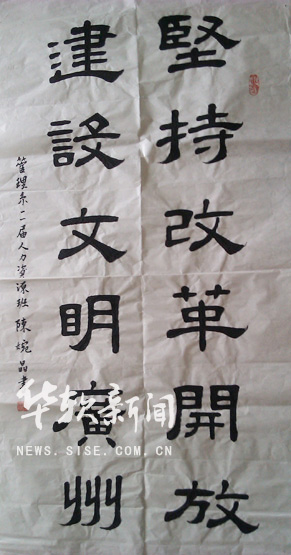 堅持改革開放
建設文明廣州
管理系二届人力資源班 陳婉晶書
华软新闻
NEWS.SISE.COM.CN